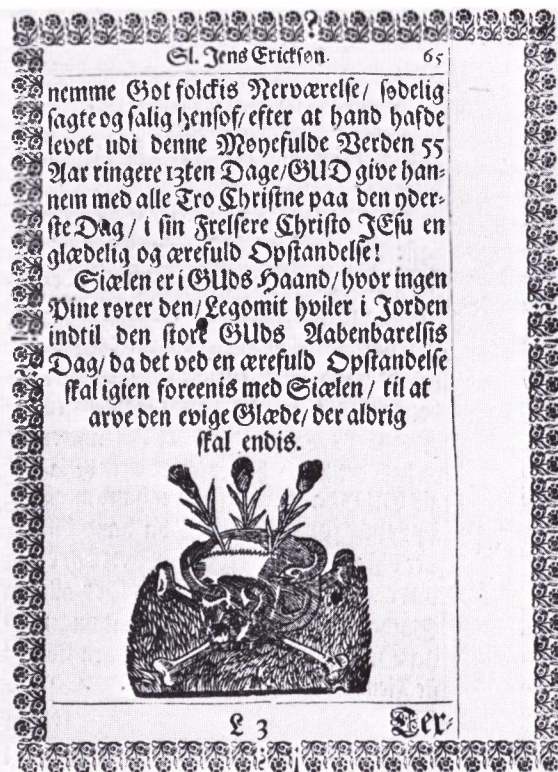 Sl. Jens Ericksøn. 65
nemme Got folckis Nerværelse/ sødelig
sagte og salig hensof/ efter at hand hafde
levet udi denne Møyefulde Verden 55
Aar ringere 13ten Dage/ GUD give han-
nem med alle Tro Christne paa den yder-
ste Dag/ i sin Frelsere Christo JEsu en
glædelig og ærefuld Opstandelse!
Siælen er i GUds Haand/ hvor ingen
Pine rører den/ Legomit hviler i Jorden
indtil den store GUds Aabenbarelsis
Dag/ da det ved en ærefuld Opstandelse
skal igien foreenis med Siælen/ til at
arve den evige Glæde/ der aldrig
skal endis.
L 3 Ter-